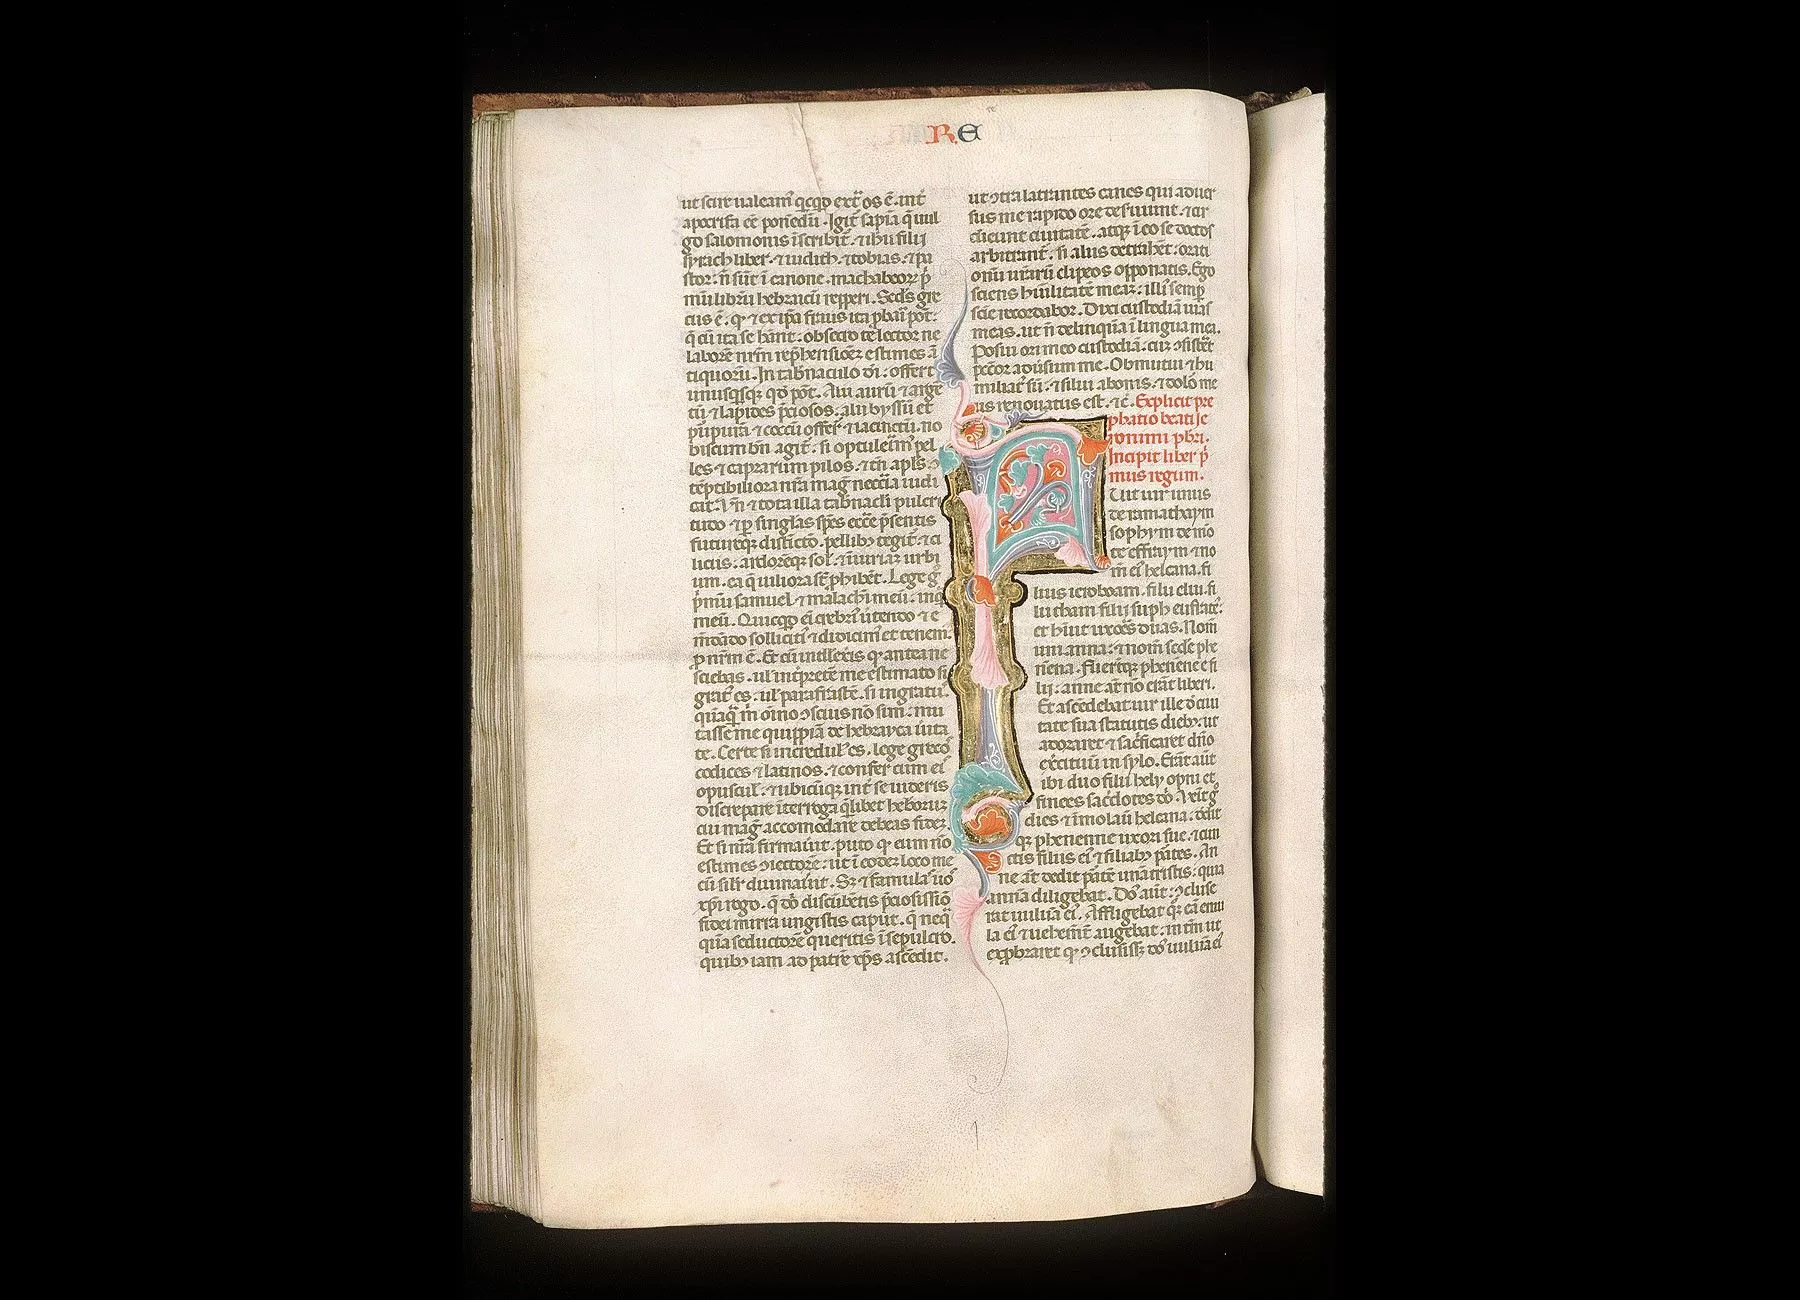 RE
ut scire ualeam᷑ qͥcqͥd extᵃ os ē. int᷑
apocrifa eē ponēdū. Igit᷑ sapīa q̄ uul
go salomonis īscribit᷑. ⁊ ihu filii
syrach liber. ⁊ iudith. ⁊ tobias. ⁊ pa
stor: n̄ sūt ī canone. machabeoꝝ pͥ
mū librū hebraicū repperi. Scd̄s gre
cus ē. qͦ ⁊ ex ip̄a frasi ita ꝓbari pōt:
q̄ cū ita se hānt. obsecro te lector ne
laborē nr̄m rep̄hensiōēꝫ estimes ā
tiquoꝝ. In tab̄naculo dī. offert
unusqͥsqꝫ qͦd pōt. Alii aurū ⁊ argē
tū ⁊ lapides p̄ciosos. alii byssū et
purpurā ⁊ coccū offer̄t ⁊ iacinctū. no
biscum bn̄ agit᷑. si optulerim᷑ pel
les ⁊ caprarum pilos. ⁊ tn̄ apl̄s
cōtēptibiliora nr̄a mag̅ necc̄ia iudi
cat. Vn̄ ⁊ tota illa tab̄nacli pulcri
tudo ⁊ ꝑ singlas sp̄es ecc̄e p̄sentis
futureqꝫ distīctō. pellibꝫ tegit᷑ ⁊ ci
liciis. ardorēqꝫ sol᷑. ⁊ iniuriaꝫ imbri
um. ea q̄ uiliora sūt ꝓhibēt. Lege gͦ
pͥmū samuel ⁊ malachī meū. inqͣ
meū. Quicqͥd ei crebrͥ ūtendo ⁊ e
mēdādo solliciti᷑ ⁊ didicim᷑ et tenem᷑.
ꝓ nr̄m ē. Et cū intllexis qͦ antea ne
sciebas. ul̄ int̄pretē me estimato si
grat᷑ es. ul̄ parafrastē. si ingratu᷑.
quāqͣ m̄ oīno ꝯscius nō sim. mu
tasse me quippiā de hebrayca ūita
te. Certe si incredul᷑ es. lege grecoˢ
codices ⁊ latinos. ⁊ confer cum ei᷑
opuscul᷑. ⁊ ubicūqꝫ int᷑ se uideris
discrepare īterroga qͥlibet hebreoꝝ
cui mag̅ accomodare debeas fidēꝫ.
Et si nr̄a firmauīt. puto qͦ eum nō
estimes ꝯiectorē: ut ī eodeꝫ loco me
cū silr̄ diuinauīt. Sꝫ ⁊ famulaˢ uōˢ
xp̄i rogo. q̄ dō discūbētis p̄ciosissiō
fidei mirra ungistis caput. q̄ neqͣ
quā seductorē queritis ī sepulcro.
quibꝫ iam ad patrē xp̄s ascēdit.
ut ꝯtra latrantes canes qui aduer
sus me rapido ore deseuiunt. ⁊ cir
cueunt ciuitatē. atqꝫ ī eo se doctos
arbitrant᷑. si aliis detrahēt. orati
onū ur̄arū clipeos opponatis. Ego
sciens hūilitatē meaꝫ: illi᷑ semꝑ
scīe recordabor. Dixi custodiā uias
meas. ut n̄ delinquā ī lingua mea.
Posui ori meo custodiā. cuꝫ ꝯsistēt
pecc̄or aduīsum me. Obmutui ⁊ hu
miliat᷑ sū. ⁊ silui a bonis. ⁊ dolō me
us renouatus est. ⁊c̄. Explicit pre
phatio beati Je
ronimi pb̄ri.
Incipit liber pͥ
mus regum.
FUit uir unus
de ramathaym
sophym de mō
te effraym ⁊ no
m̄ ei᷑ helcana. fi
lius ieroboam. filii eliu. fi
lii thaū filii suph eufrate᷑.
et hūit uxoēs duas. Nom̄
uni anna: ⁊ nom̄ scd̄e phe
nēna. Fuerūtqꝫ phenēne fi
lii: anne aūt nō erāt liberi.
Et ascēdebat uir ille d̄ ciui
tate sua statutis diebꝫ: ut
adoraret ⁊ sac͛ficaret dn̄o
exēcituū in sylo. Erāt aūt
ibi duo filii hely opni et
finees sac͛dotes dō. Uēit gͦ
dies ⁊ īmolauī helcana. dedit
qꝫ phenenne uxori sue. ⁊ cūn
ctis filiis ei᷑ ⁊ filiabꝫ ꝑtes. An
ne aūt dedit ꝑtē unā tristis: quia
annā diligebat. Dō aūt: ꝯcluse
rat uuluā ei᷑. Affligebat qͦꝫ eā emu
la ei᷑ ⁊ uehem̄t augebat. in tm̄ ut
exꝓbraret qͦ ꝯclusissꝫ dō uuluā ei᷑